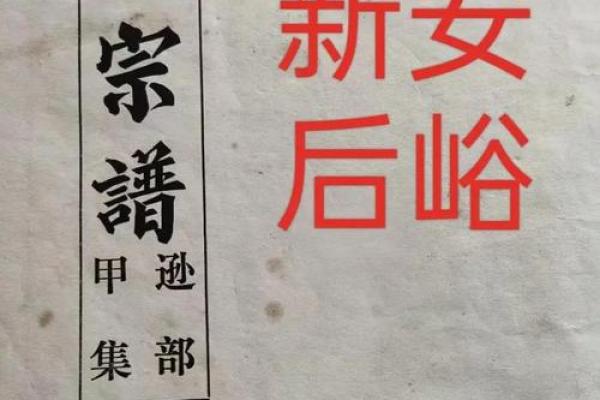 新安
后峪
宗譜
逊部
甲集